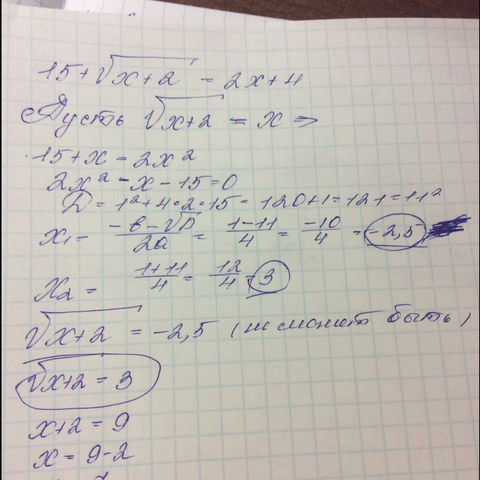 15+√x+2 = 2x+4
Пусть √x+2 = x ⇒
15+x = 2x²
2x² - x - 15 = 0
D = 1²+4·2·15 = 120+1 = 121 = 11²
x₁ = -в-√D/2a = 1-11/4 = -10/4 = -2,5
x₂ = 1+11/4 = 12/4 = 3
√x+2 = -2,5 (не может быть)
√x+2 = 3
x+2 = 9
x = 9-2